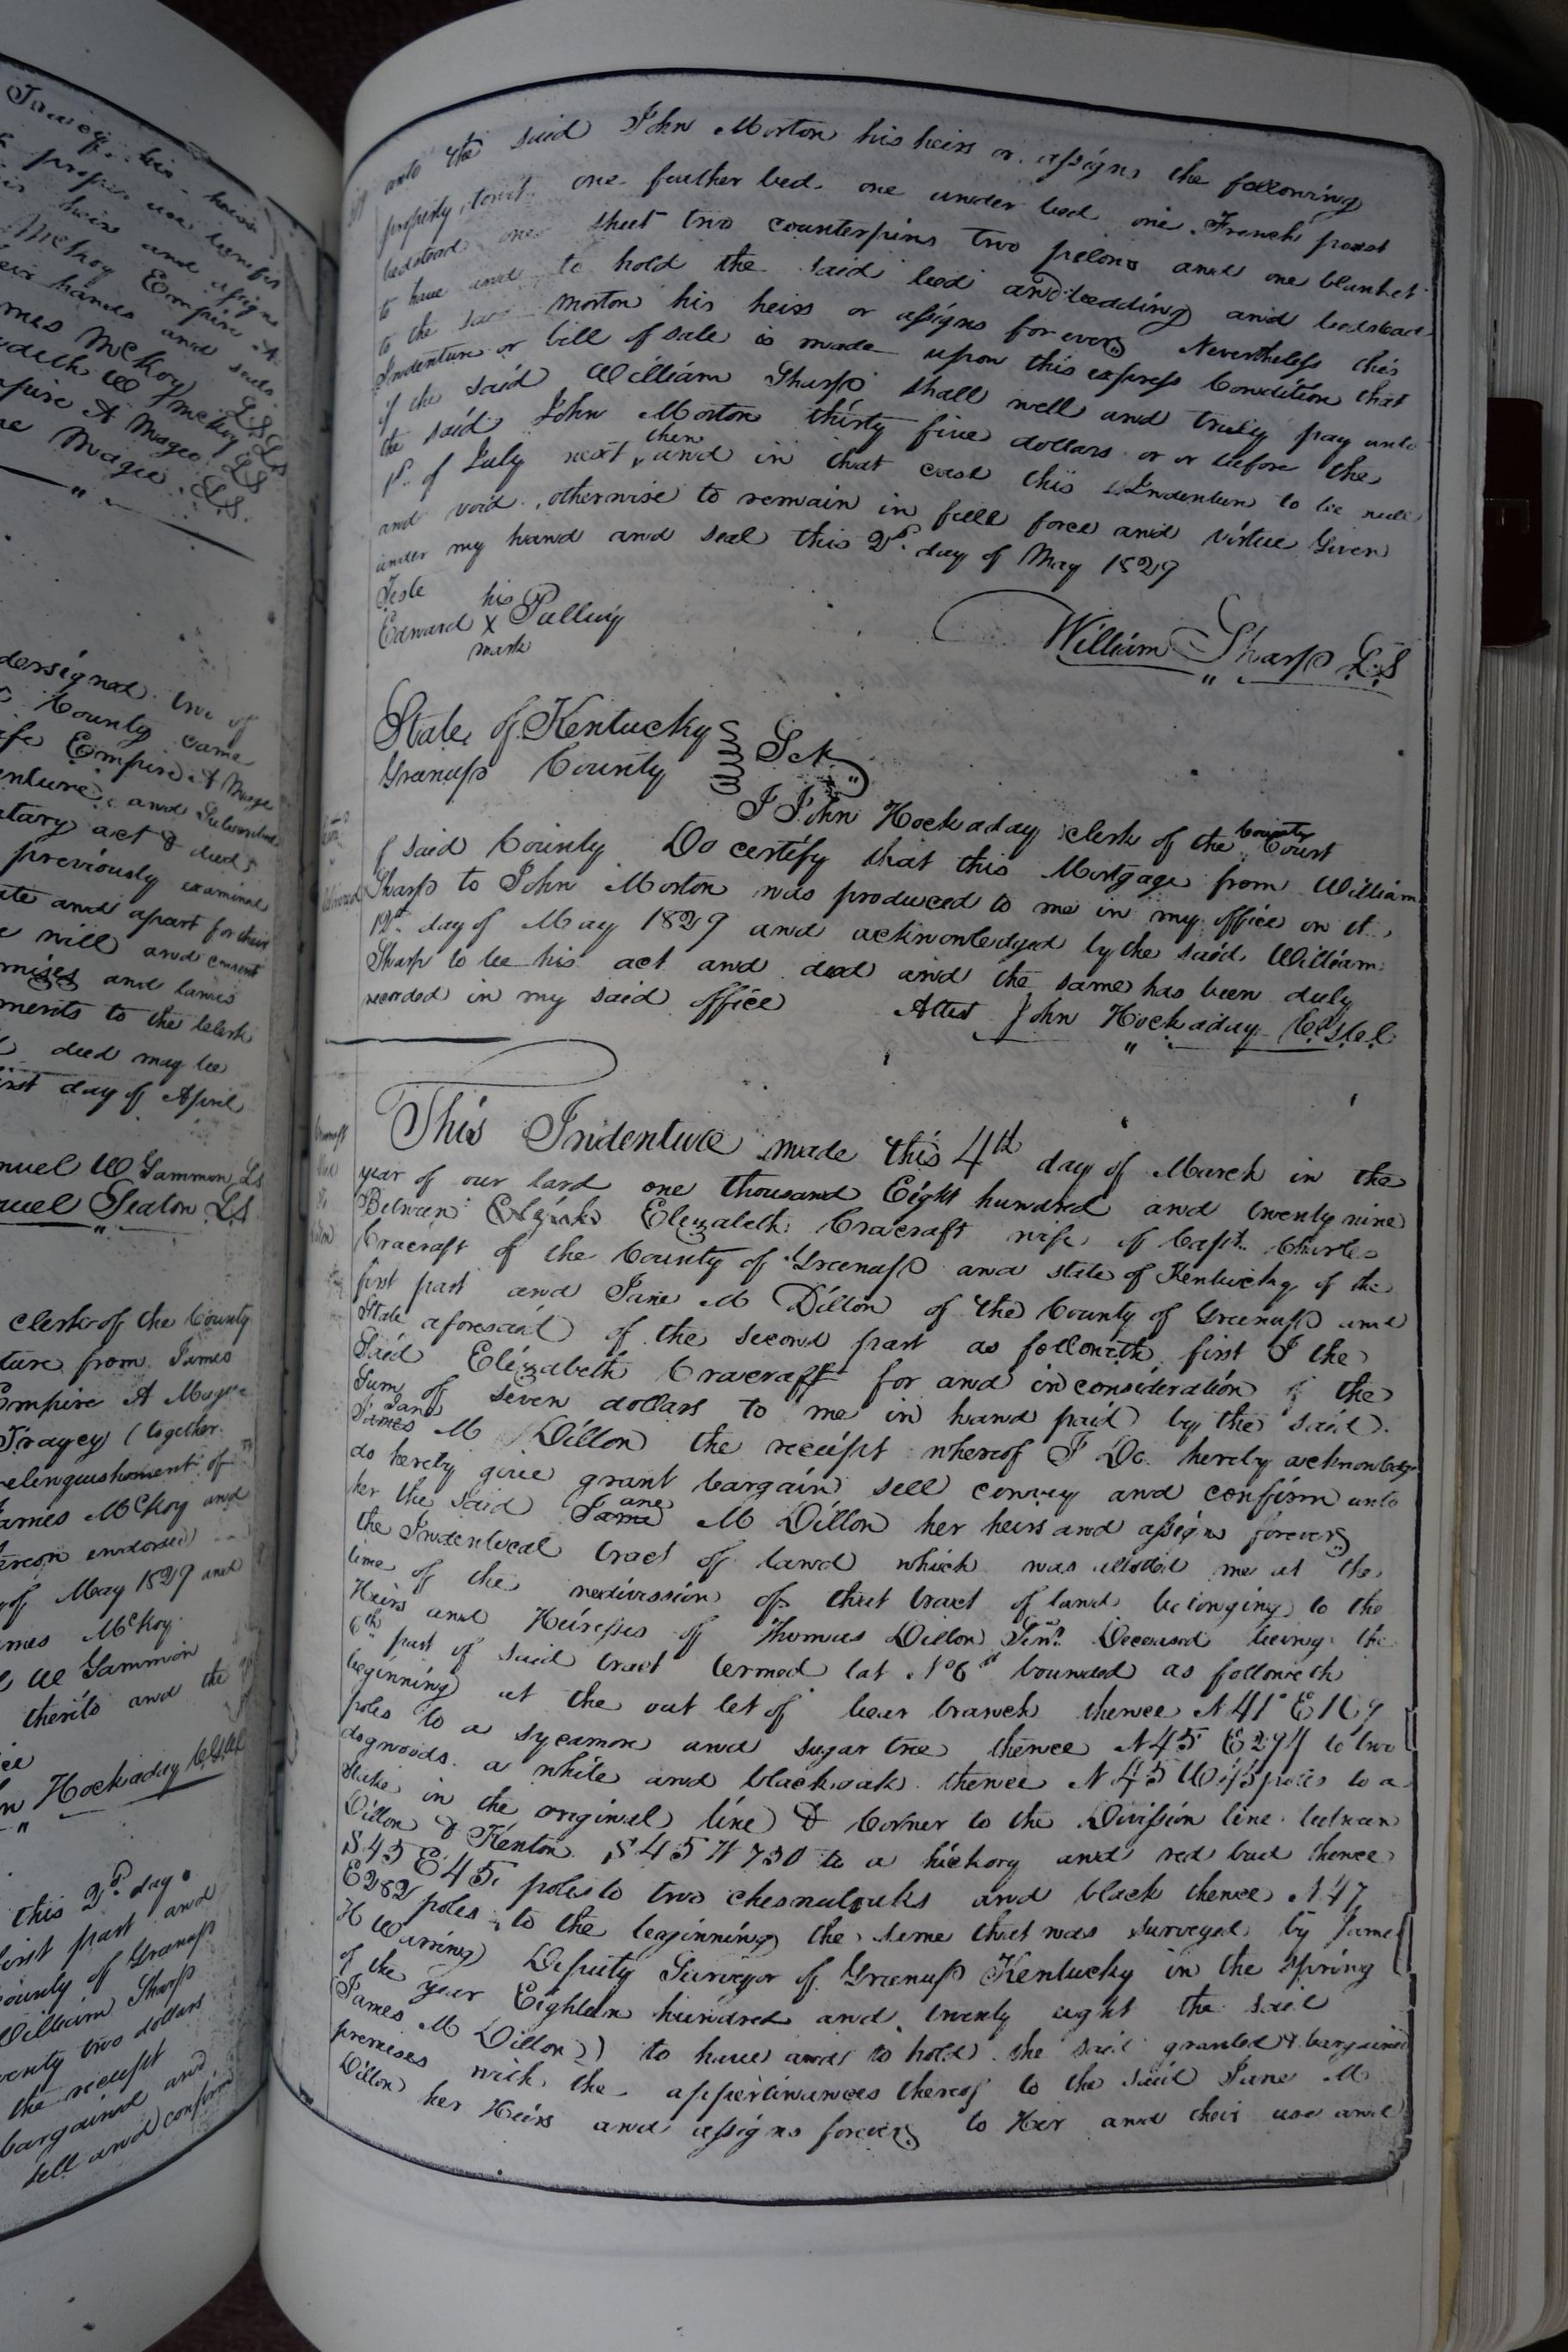 Tracey his heirs
proper use benefit
heirs and assigns
McKoy Empire A
their hands and seals
James McKoy LS
W McKoy LS
Empire A Magee LS
Magee LS
undersigned two of
County came
wife Empire A Magee
Indenture and
act & deed
previously examined
and apart for their
will and consent
premises and lands
to the Clerk
deed may be
first day of April
Samuel W Gammon LS
Samuel Seaton LS
clerk of the County
Indenture from James
Empire A Magee
Tracey (together
relinquishment of
James McKoy and
thereon endorsed)
of May 1829 and
James McKoy
W Gammon
thereto and the
John Hockaday
this 2d day
first part and
County of Greenup
William Sharp
twenty two dollars
the receipt
bargained and
sell and confirm
unto the said John Morton his heirs or assigns the following
property towit one feather bed one under bed one French poast
bedstead one sheet two counterpins two pelows and one blanket
to have and to hold the said bed and bedding and bedstead
to the said Morton his heirs or assigns forever Nevertheless this
Indenture or bill of sale is made upon this express Condition that
if the said William Sharp shall well and truly pay unto
the said John Morton thirty five dollars or or before the
1st of July next then and in that case this Indenture to be null
and void otherwise to remain in full force and virtue Given
under my hand and seal this 2d day of May 1829
Teste
Edward his X mark Pulling
William Sharp L.S
State of Kentucky
Greenup County Sct
I John Hockaday clerk of the County Court
of said County Do certify that this Mortgage from William
Sharp to John Morton was produced to me in my office on the
12th day of May 1829 and acknowledged by the said William
Sharp to be his act and deed and the same has been duly
recorded in my said office Attest John Hockaday
This Indenture made this 4th day of March in the
year of our lord one thousand Eight hundred and twenty nine
Between Elizabeth Cracraft wife of Capt. Charles
Cracraft of the County of Greenup and state of Kentucky of the
first part and Jane M Dillon of the County of Greenup and
State aforesaid of the second part as followeth first I the
Said Elizabeth Cracraft for and in consideration of the
Sum of seven dollars to me in hand paid by the said
James Jane M Dillon the receipt whereof I Do hereby acknowledge
do hereby give grant bargain sell convey and confirm unto
her the said Jane M Dillon her heirs and assigns forever
the Indentecal tract of land which was allotted me at the
time of the redivission of that tract of land belonging to the
Heirs and Heiresses of Thomas Dillon Senr. Deceased being the
6th part of said tract termed lot No 6 bounded as followeth
beginning at the out let of bear branch thence N 41° E
poles to a sycamore and sugar tree thence N 45 E to two
dogwoods a white and black oak thence N 45 W poles to a
stake in the original line & Corner to the Division line between
Dillon & Kenton S 45 W 730 to a hickory and red bud thence
S 45 E 45 poles to two chesnutoaks and black thence N 47
E 282 poles to the beginning the same that was surveyed by James
H Warring Deputy Surveyor of Greenup Kentucky in the spring
of the year Eighteen hundred and twenty eight the said
James M Dillon to have and to hold the said granted & bargained
premises with the appertinances thereof to the said Jane M
Dillon her Heirs and assigns forever to Her and their use and